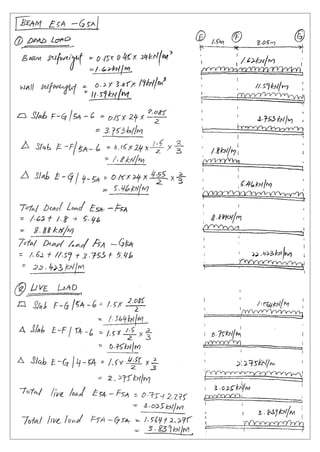 BEAM E5A - G5A
① DEAD LOAD
Beam selfweight = 0.15 x 0.45 x 24kN/m³
= 1.62kN/m
wall selfweight = 0.2 x 3.05 x 19kN/m³
= 11.59kN/m
Slab F-G/5A-6 = 0.15x24 x 2.085/2
= 3.753kN/m
△ Slab E-F/5A-6 = 0.15x24 x 1.5/2 x 2/3
= 1.8kN/m
△ Slab E-G/4-5A = 0.15x24 x 4.55/2 x 2/3
= 5.46kN/m
Total Dead Load E5A - F5A
= 1.62 + 1.8 + 5.46
= 8.88 kN/m
Total Dead load F5A - G5A
= 1.62 + 11.59 + 3.753 + 5.46
= 22.423kN/m
② LIVE LOAD
Slab F-G/5A-6 = 1.5 x 2.085/2
= 1.564kN/m
△ Slab E-F/5A-6 = 1.5 x 1.5/2 x 2/3
= 0.75kN/m
△ Slab E-G/4-5A = 1.5 x 4.55/2 x 2/3
= 2.275kN/m
Total live load E5A - F5A = 0.75 + 2.275
= 3.025kN/m
Total live load F5A - G5A = 1.564 + 2.275
= 3.839kN/m
E F G
1.5m 3.05m
1.62kN/m
11.59kN/m
3.753kN/m
1.8kN/m
5.46kN/m
8.88kN/m
22.423kN/m
1.564kN/m
0.75kN/m
2.275kN/m
3.025kN/m
3.839kN/m